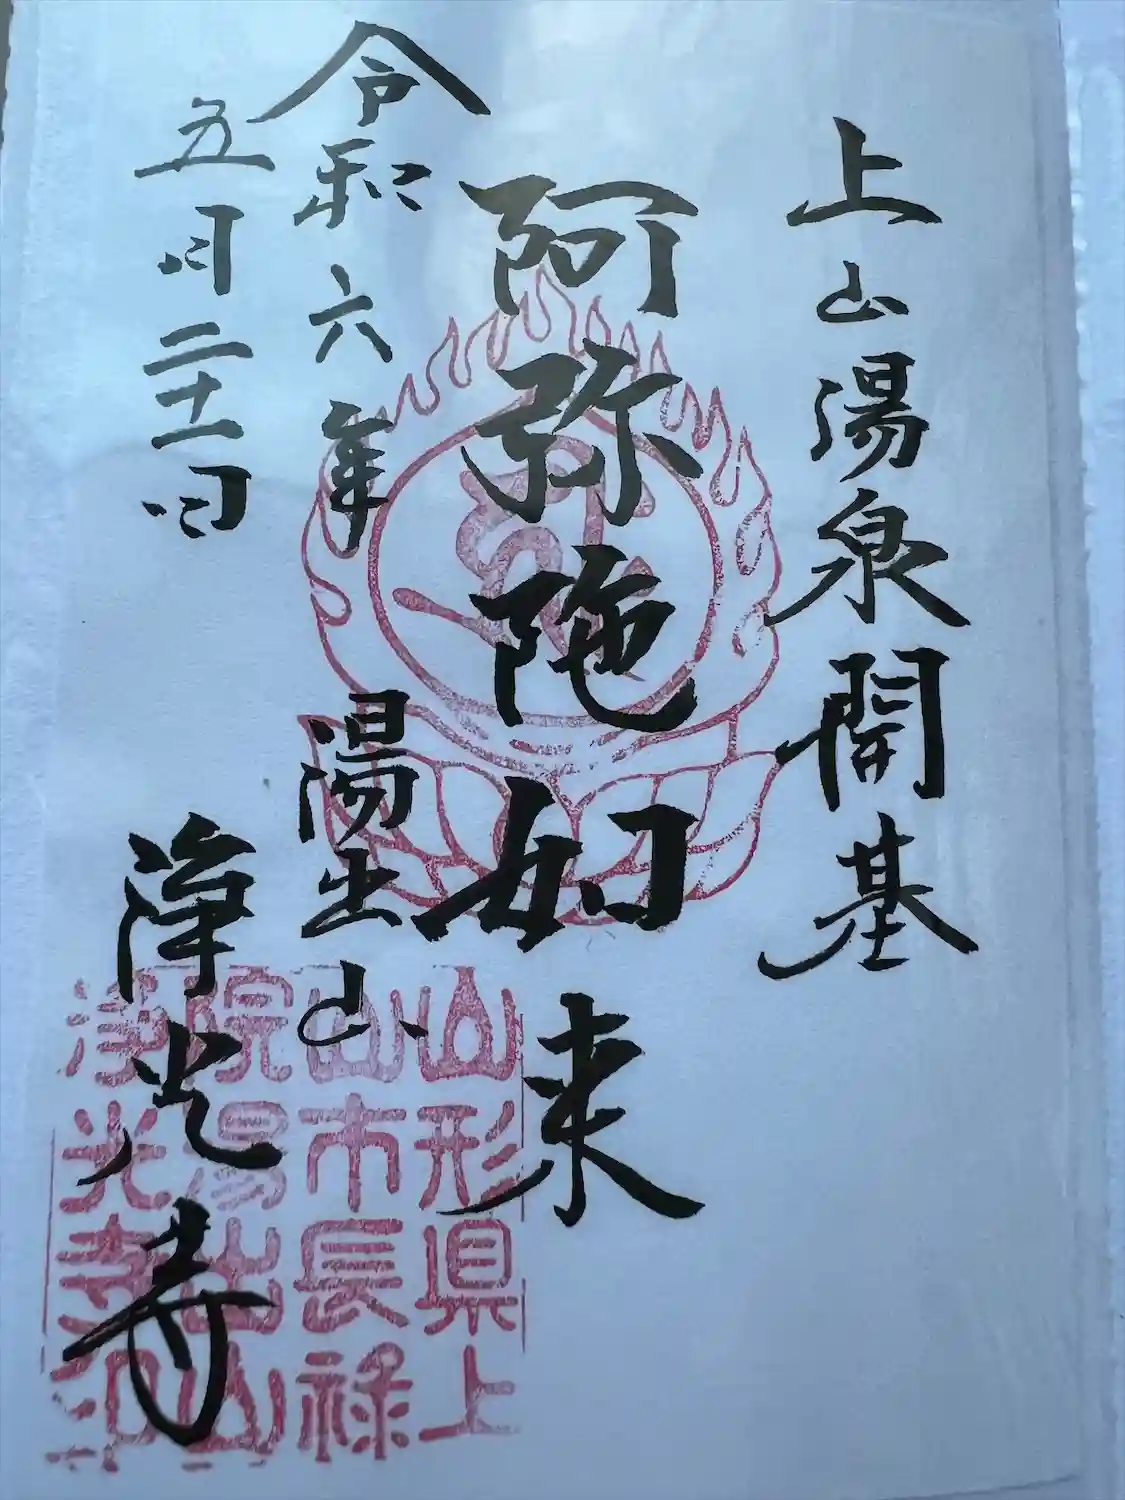 上山湯泉開基
阿弥陀如来
令和六年
五月二十一日
湯出山
浄光寺
山形県上
山市長禄
院湯出山
浄光寺印